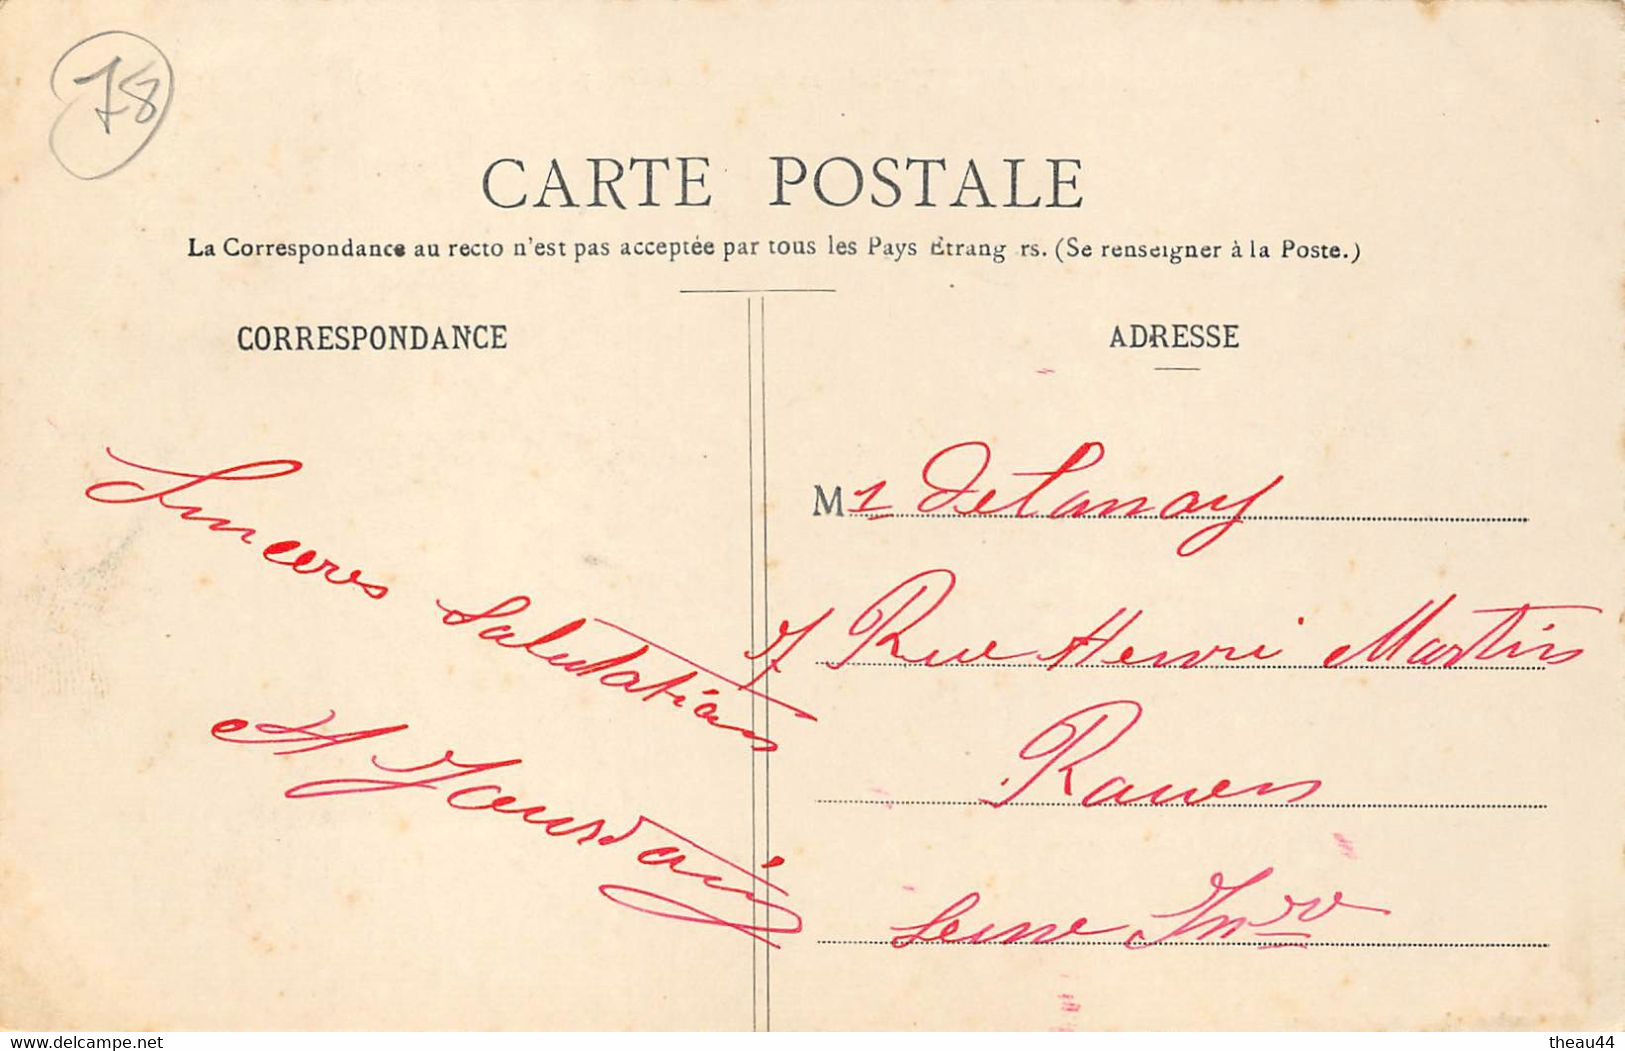 78
CARTE POSTALE
La Correspondance au recto n'est pas acceptée par tous les Pays Étrang rs. (Se renseigner à la Poste.)
CORRESPONDANCE
Sinceres Salutations
H Jourdain
ADRESSE
Mr Delanay
7 Rue Henri Martin
Rouen
Seine Infre
delcampe.net
theau44